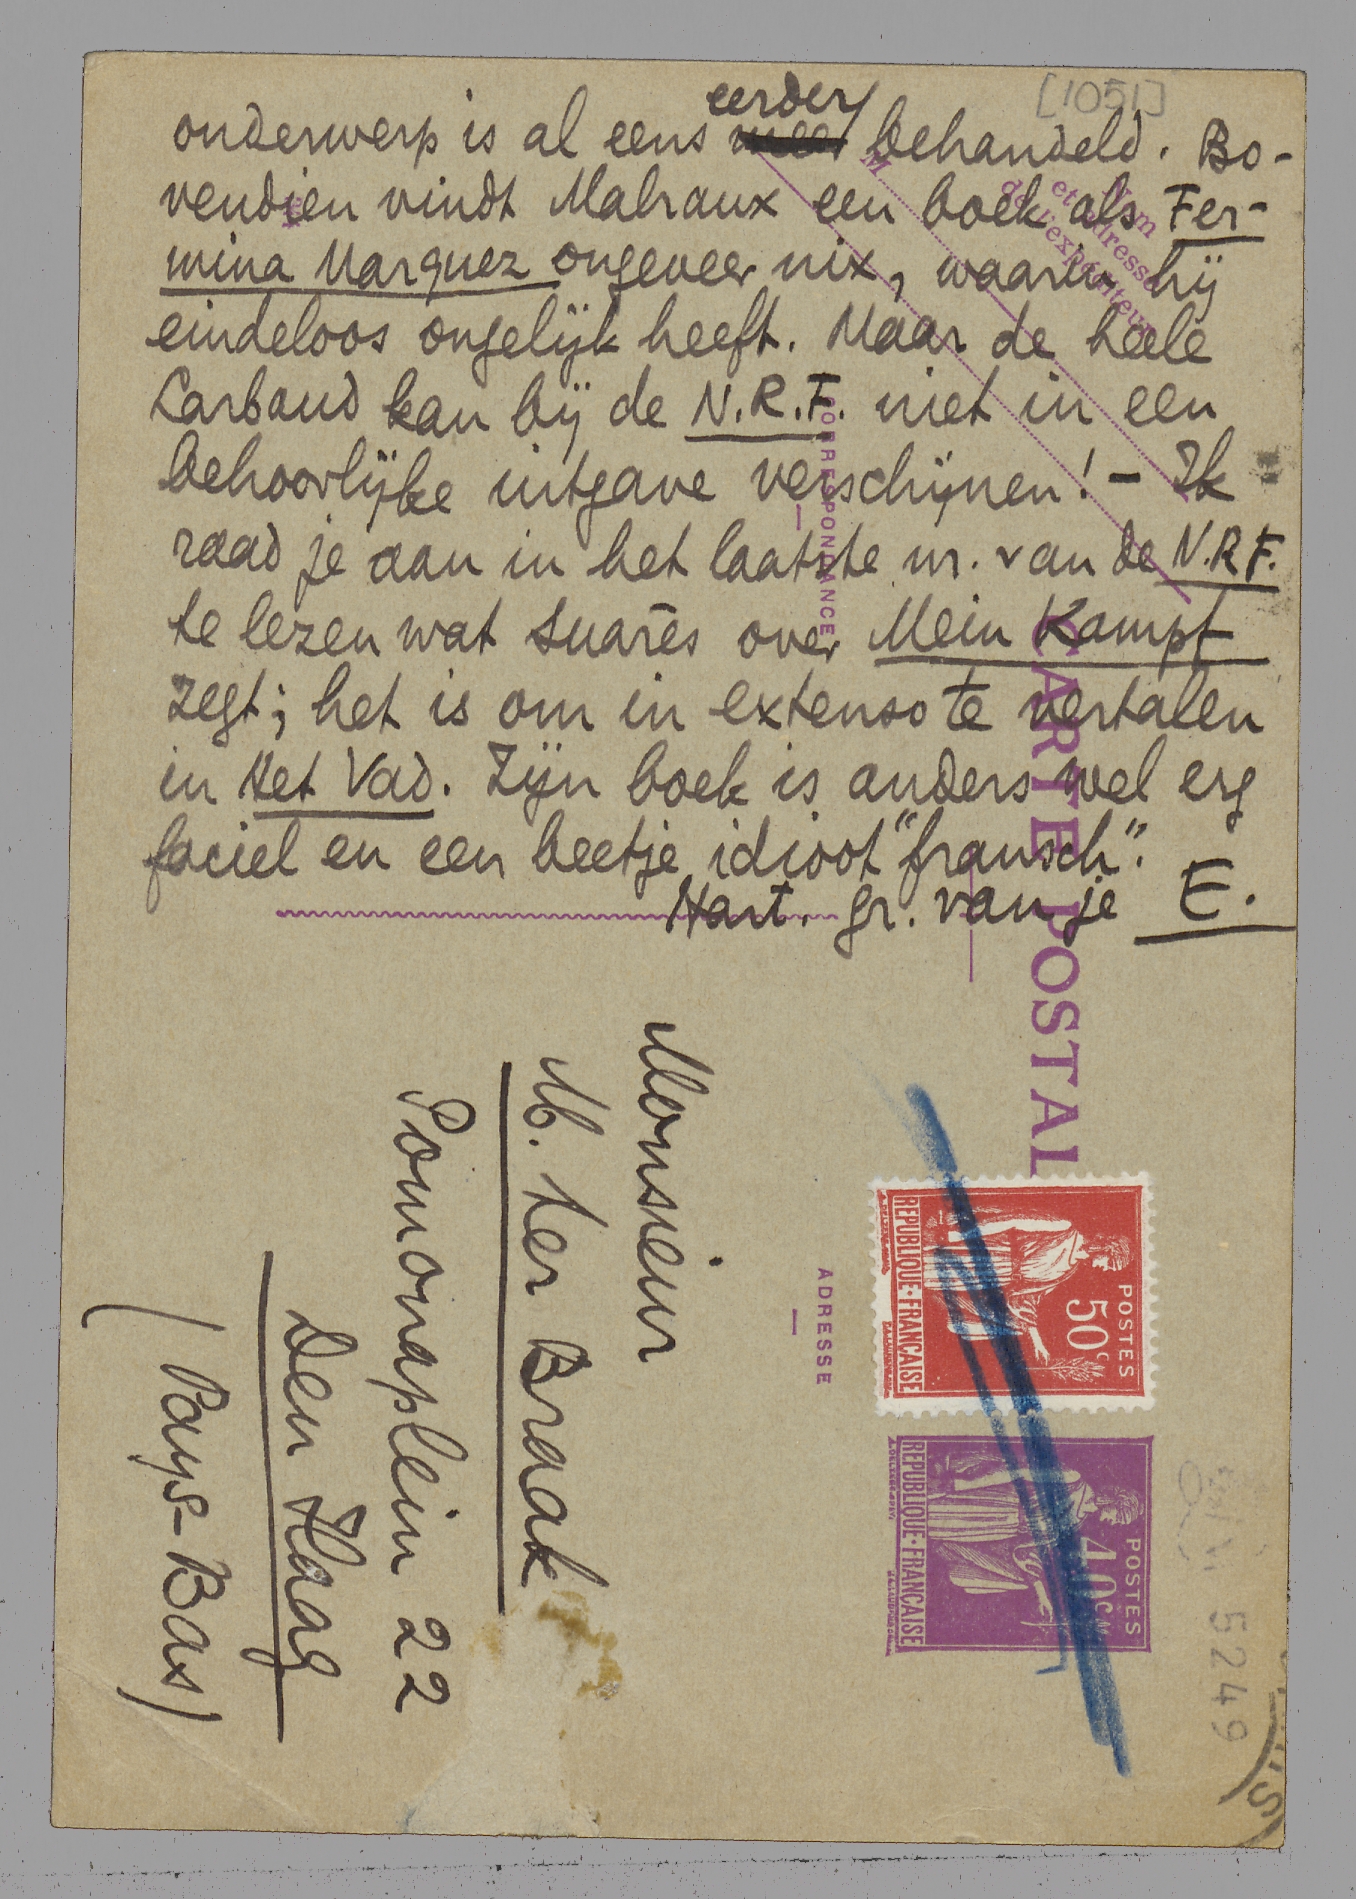 [1051]
eerder
onderwerp is al eens behandeld. Bo-
vendien vindt Malraux een boek als Fer-
mina Marquez ongeveer nix, waarin hij
eindeloos ongelijk heeft. Maar de heele
Larbaud kan bij de N.R.F. niet in een
behoorlijke uitgave verschijnen! – Ik
raad je aan in het laatste nr. van de N.R.F.
te lezen wat Suarès over Mein Kampf
zegt; het is om in extenso te vertalen
in Het Vad. Zijn boek is anders wel erg
faciel en een beetje idioot "fransch".
Hart. gr. van je E.
M
Nom
et adresse
de l'expéditeur
CORRESPONDANCE
CARTE POSTAL
ADRESSE
Monsieur
M. ter Braak
Pomonaplein 22
Den Haag
(Pays-Bas)
POSTES
50c
REPUBLIQUE·FRANÇAISE
POSTES
40c
REPUBLIQUE·FRANÇAISE
5249